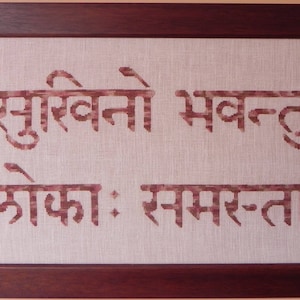 सुखिनो भवन्तु
लोकाः समस्ता